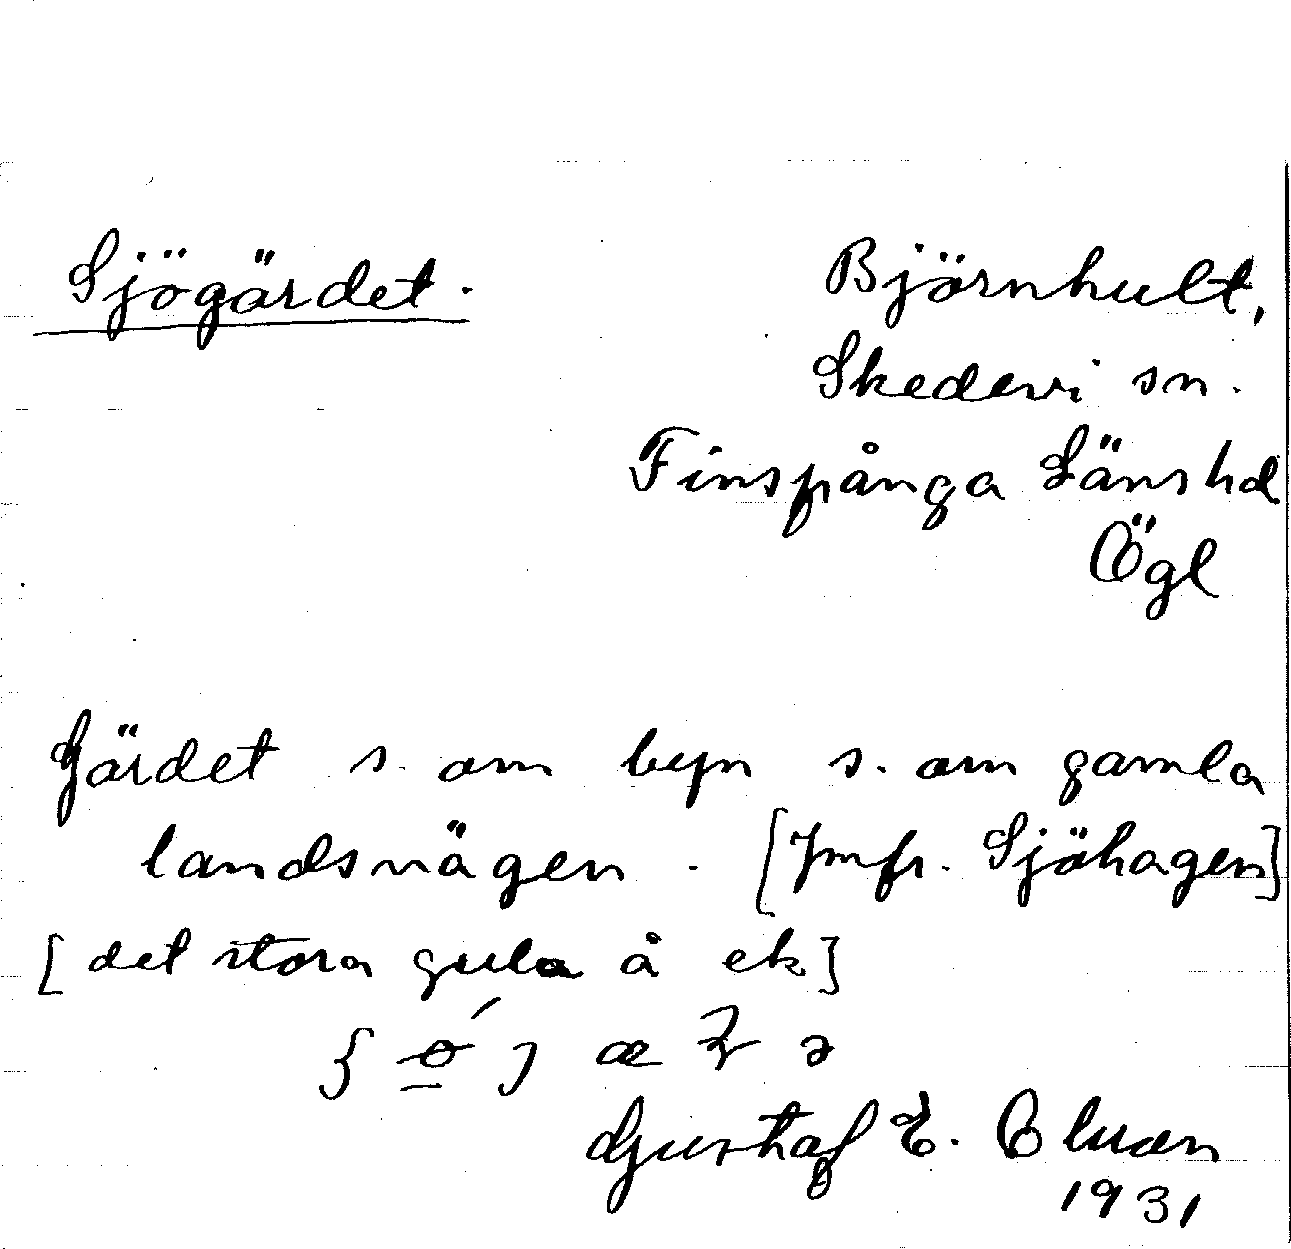 Sjögärdet.
Björnhult,
Skedevi sn.
Finspånga Läns hd
Ögl
Gärdet s. om byn s. om gamla
landsvägen. [Jmfr. Sjöhagen]
[det stora gula å ek]
Gustaf E.
1931